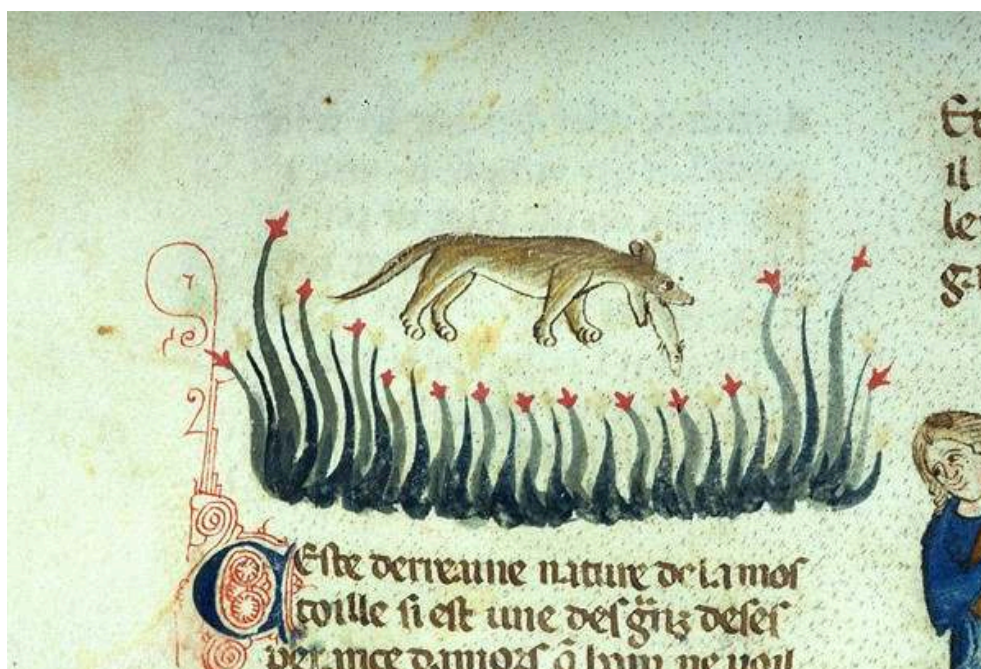 Et
il
le
ga
Ceste derreaine nature de la mos
toille si est une des gr̃iz deses
perance damors q̃ hom ne voil